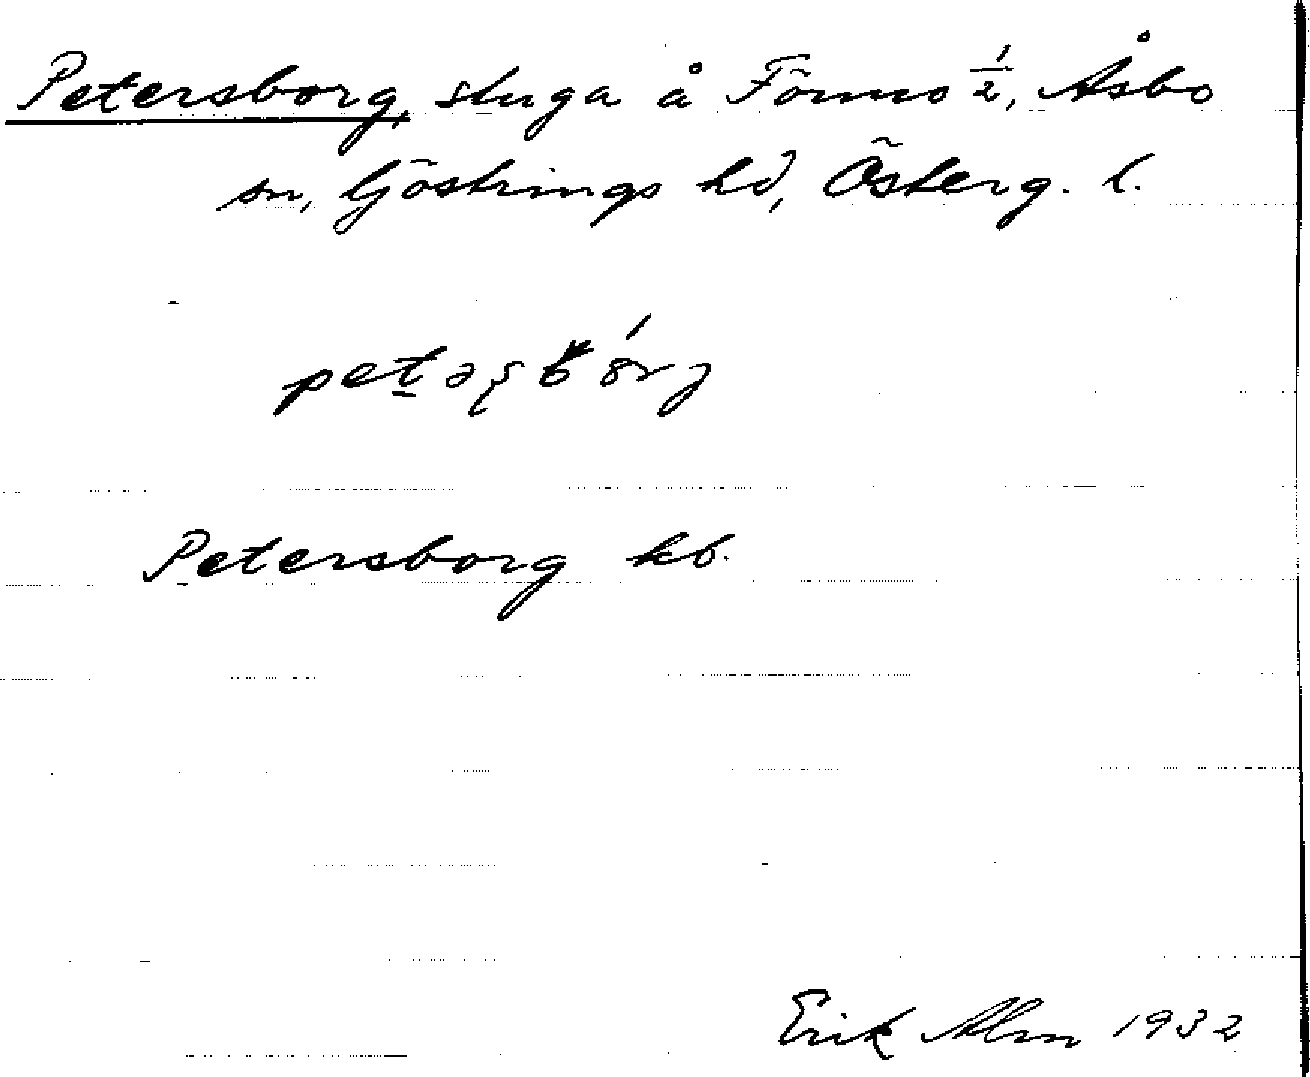 Petersborg, stuga å Fönnö 1/2, Åsbo
sn, Göstrings hd, Österg. l.
Petersborg kb.
Erik Alm 1932